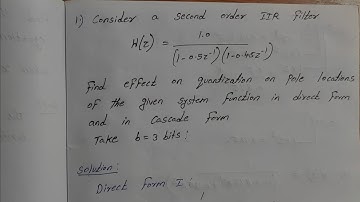 1) Consider a second order IIR filter
H(z) = 1.0
(1-0.5z⁻¹)(1-0.45z⁻¹)
Find effect on quantization on pole locations
of the given system function in direct form
and in cascade form
Take b = 3 bits:
Solution:
Direct form I:
1